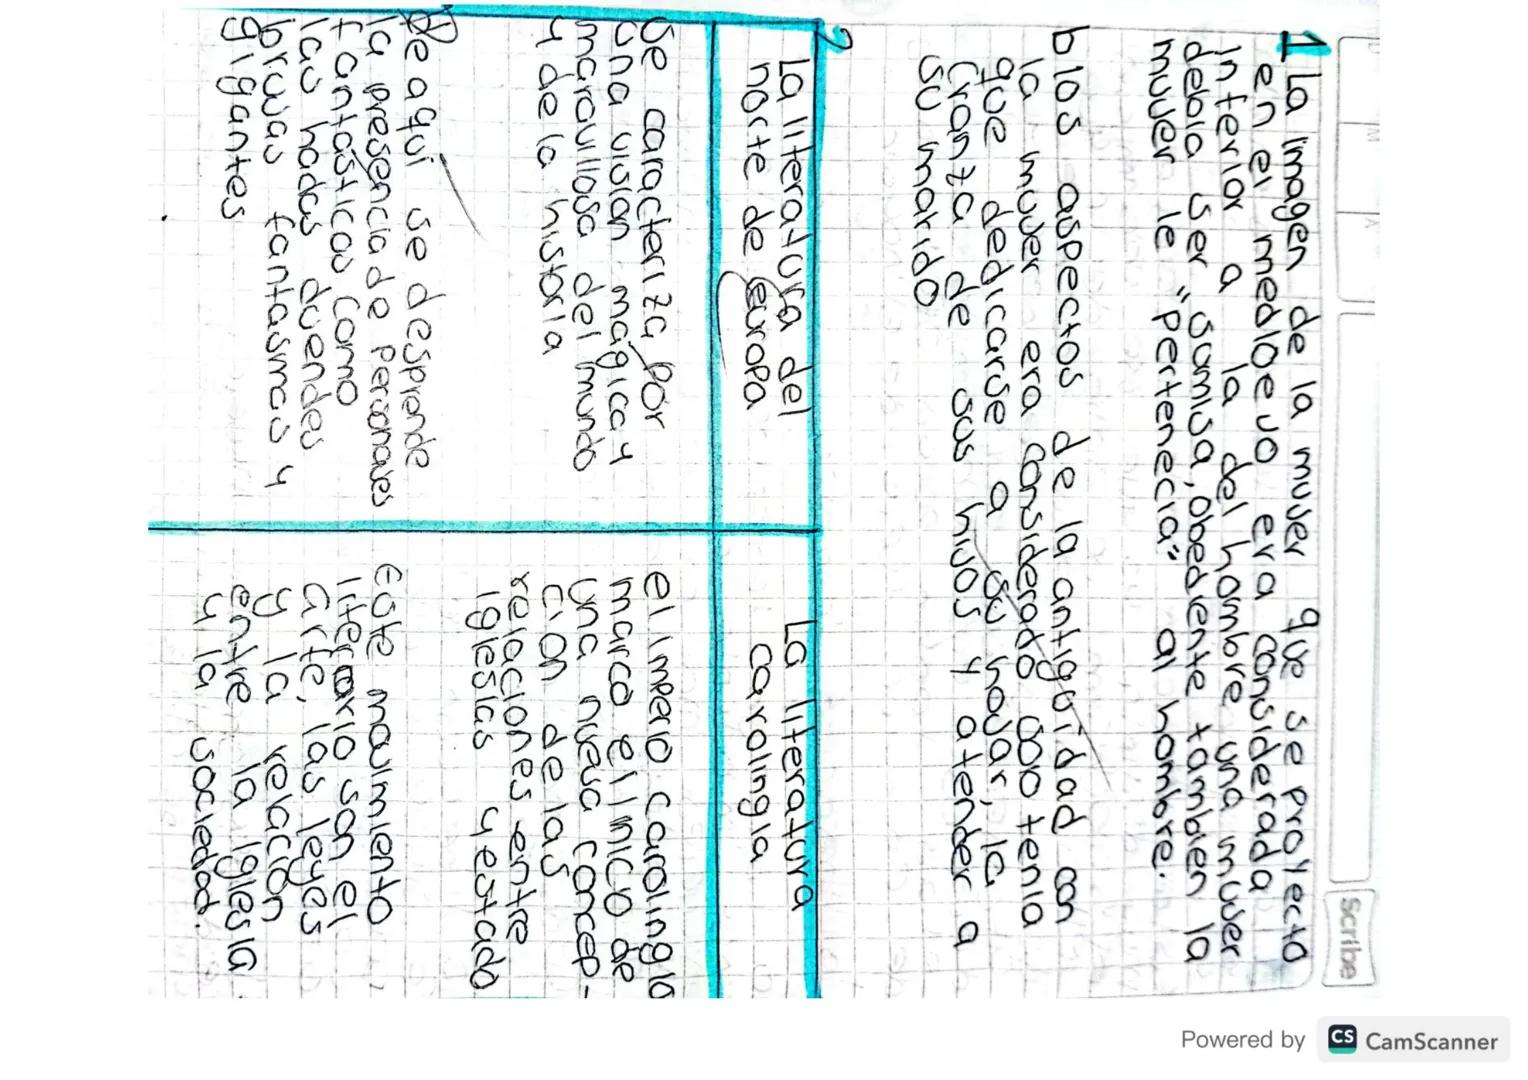 Scribe
1 La imagen de la mujer que se proyecto
en el medioevo era considerada
inferior a la del hombre una mujer
debia ser "sumisa, obediente tambien la
mujer le "pertenecia" al hombre.
b los aspectos de la antiguidad con
la mujer era considerado solo tenia
que dedicarse a su hojar, la
crianza de sus hijos y atender a
su marido
2
La literatura del
norte de europa
Se caracteriza por
una vision mágica y
maravillosa del mundo
y de la historia
De aqui se desprende
la presencia de personajes
fantásticos como
las hadas duendes
brujas fantasmas y
gigantes
La literatura
carolingia
el imperio carolingio
marco el inicio de
una nueva concep-
cion de las
relaciones entre
iglesias y estado
Este movimiento
literario son el
arte, las leyes
y la relación
entre la iglesia
y la sociedad.
Powered by CS CamScanner